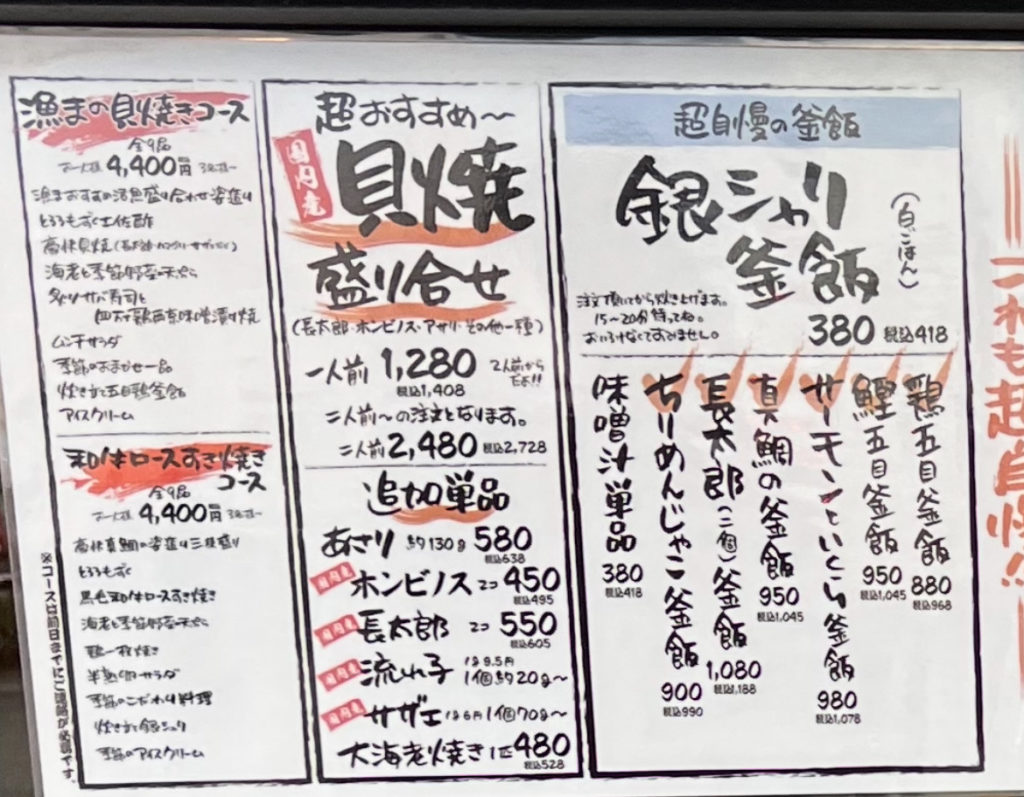 漁まの貝焼きコース
全9品
お一人様 4,400円 3名様~
漁まおすすめ活魚盛り合わせ姿造り
とろろもずく土佐酢
海老と季節野菜の天ぷら
炙りサバ寿司と
西京味噌漬け焼
ムンチサラダ
季節のおまかせ一品
炊き立て五目鶏釜飯
アイスクリーム
和牛ロースすき焼き
コース
全9品
お一人様 4,400円 3名様~
とろろもずく
黒毛和牛ロースすき焼き
海老と季節野菜の天ぷら
半熟卵サラダ
季節のこだわり料理
炊き立て銀シャリ
季節のアイスクリーム
※コースは前日までにご連絡が必要です。
超おすすめ~
国内産
貝焼
盛り合せ
(長太郎・ホンビノス・アサリ・その他一種)
一人前 1,280 2人前からだよ!!
税込1,408
二人前~の注文となります。
二人前 2,480 税込2,728
追加単品
あさり 約130g 580
税込638
国内産 ホンビノス 2コ 450
税込495
国内産 長太郎 2コ 550
税込605
国内産 流れ子 1g9.5円 1個約20g~
国内産 サザエ 1g6円 1個70g~
大海老焼き 1匹 480
税込528
超自慢の釜飯
銀シャリ
釜飯
(白ごはん)
注文頂いてから炊き上げます。
15~20分待ってね。
おいそれなくてすみません。
380 税込418
鶏五目釜飯 880 税込968
鰹五目釜飯 950 税込1,045
サーモンといくら釜飯 980 税込1,078
真鯛の釜飯 950 税込1,045
長太郎(二個)釜飯 1,080 税込1,188
ちりめんじゃこ釜飯 900 税込990
味噌汁単品 380 税込418
も超自慢!!